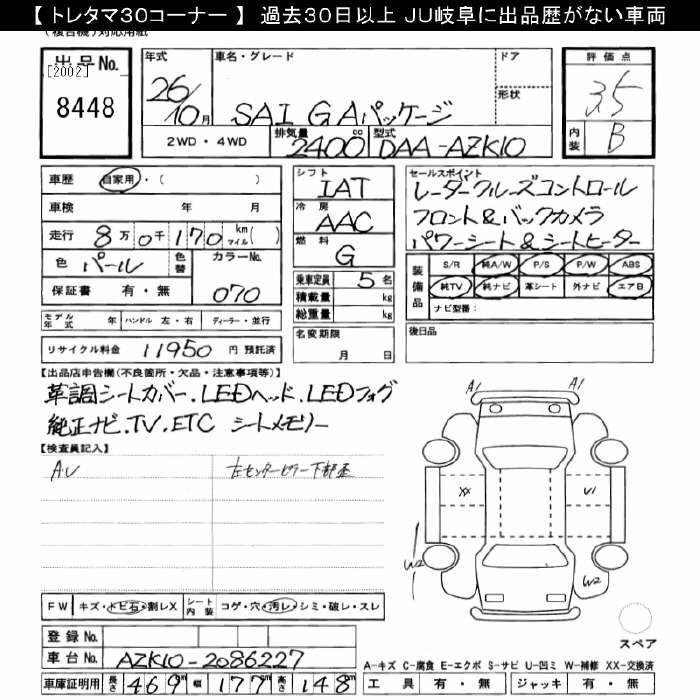 【 トレタマ30コーナー 】 過去30日以上 JU岐阜に出品歴がない車両
(複合機)対応用紙
出品No.
[2002]
8448
年式 車名・グレード ドア
26/10月 SAI G Aパッケージ 形状
2WD・4WD 排気量 2400 cc 型式 DAA-AZK10
評価点
3.5
内装 B
車歴 自家用・( )
車検 年 月
走行 8万0千170 km マイル( )
色 パール 色替 カラーNo.
保証書 有・無 070
モデル年式 年 ハンドル 左・右 ディーラー・並行
リサイクル料金 11950 円 預託済
シフト IAT
冷房 AAC
燃料 G
乗車定員 5名
積載量 kg
総重量 kg
名変期限
月 日
セールスポイント
レーダークルーズコントロール
フロント&バックカメラ
パワーシート&シートヒーター
装備品 S/R 純A/W P/S P/W ABS
純TV 純ナビ 革シート 外ナビ エアB
ナビ型番:
後日品
【出品店申告欄(不良箇所・欠品・注意事項等)】
革調シートカバー.LEDヘッド.LEDフォグ
純正ナビ.TV.ETC シートメモリー
【検査員記入】
AU 左センターピラー下部歪
A1 A1
XX U1
W2 W2
FW キズ・トビ石・割レX シート内装 コゲ・穴・汚レ・シミ・破レ・スレ
スペア
登録No.
車台No. AZK10-2086227
A-キズ C-腐食 E-エクボ S-サビ U-凹ミ W-補修 XX-交換済
車庫証明用 長さ 469cm 幅 177cm 高さ 148cm 工具 有・無 ジャッキ 有・無